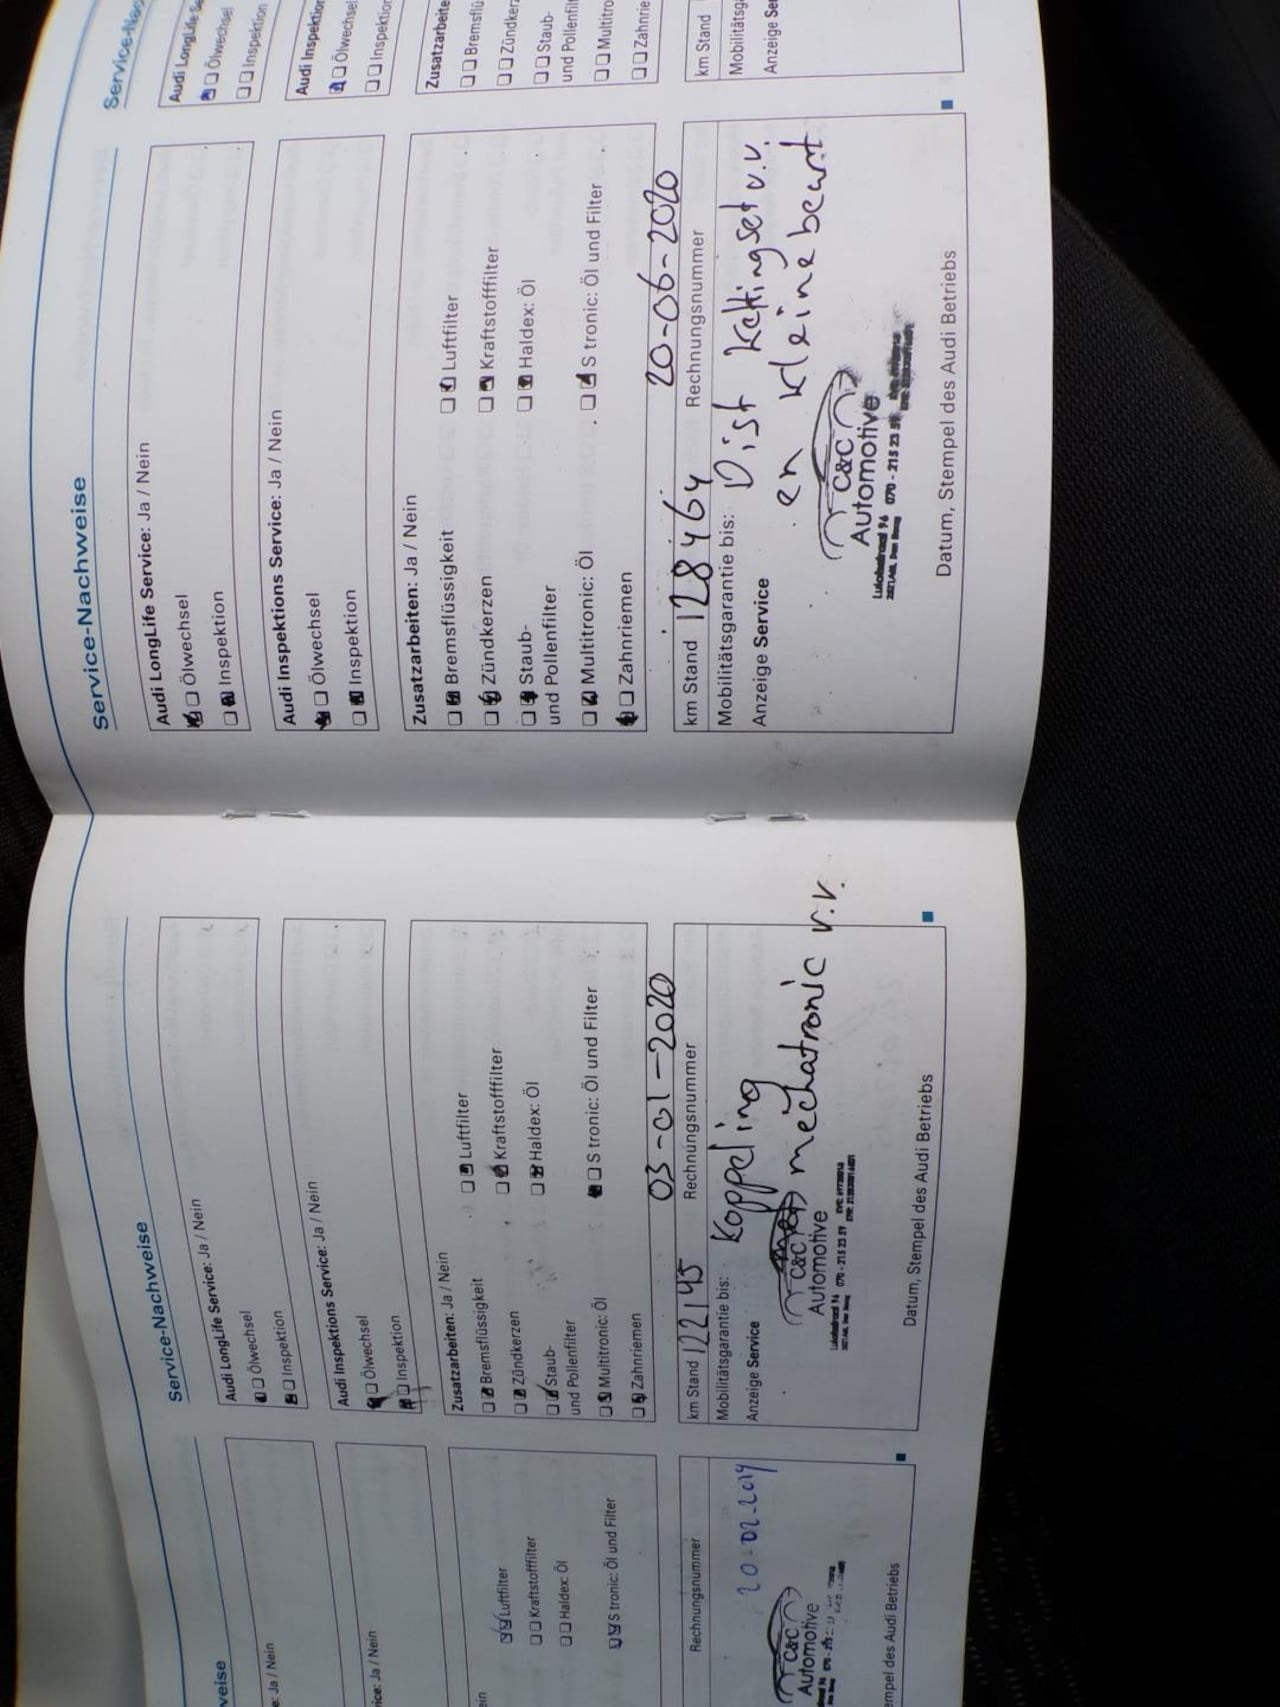 veise
e: Ja / Nein
ice: Ja / Nein
ein
Luftfilter
Kraftstofffilter
Haldex: Öl
S tronic: Öl und Filter
Rechnungsnummer
20-02-2019
C&C
Automotive
empel des Audi Betriebs
Service-Nachweise
Audi LongLife Service: Ja / Nein
Ölwechsel
Inspektion
Audi Inspektions Service: Ja / Nein
Ölwechsel
Inspektion
Zusatzarbeiten: Ja / Nein
Bremsflüssigkeit Luftfilter
Zündkerzen Kraftstofffilter
Staub- Haldex: Öl
und Pollenfilter
Multitronic: Öl S tronic: Öl und Filter
Zahnriemen
03-01-2020
km Stand 122145 Rechnungsnummer
Mobilitätsgarantie bis: Koppeling
Anzeige Service
mechatronic v.v.
C&C
Automotive
070 - 215 23 59
Datum, Stempel des Audi Betriebs
Service-Nachweise
Audi LongLife Service: Ja / Nein
Ölwechsel
Inspektion
Audi Inspektions Service: Ja / Nein
Ölwechsel
Inspektion
Zusatzarbeiten: Ja / Nein
Bremsflüssigkeit Luftfilter
Zündkerzen Kraftstofffilter
Staub- Haldex: Öl
und Pollenfilter
Multitronic: Öl S tronic: Öl und Filter
Zahnriemen
20-06-2020
km Stand 128464 Rechnungsnummer
Mobilitätsgarantie bis: Dist kettingset v.v.
Anzeige Service
en kleine beurt
C&C
Automotive
070 - 215 23 59
Datum, Stempel des Audi Betriebs
Service-Nac
Audi LongLife Se
Ölwechsel
Inspektion
Audi Inspektion
Ölwechsel
Inspektion
Zusatzarbeite
Bremsflü
Zündker
Staub-
und Pollenfilt
Multitro
Zahnrie
km Stand
Mobilitätsga
Anzeige Ser